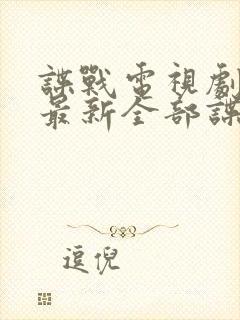 諜戰電視劇
最新全部諜
逗倪